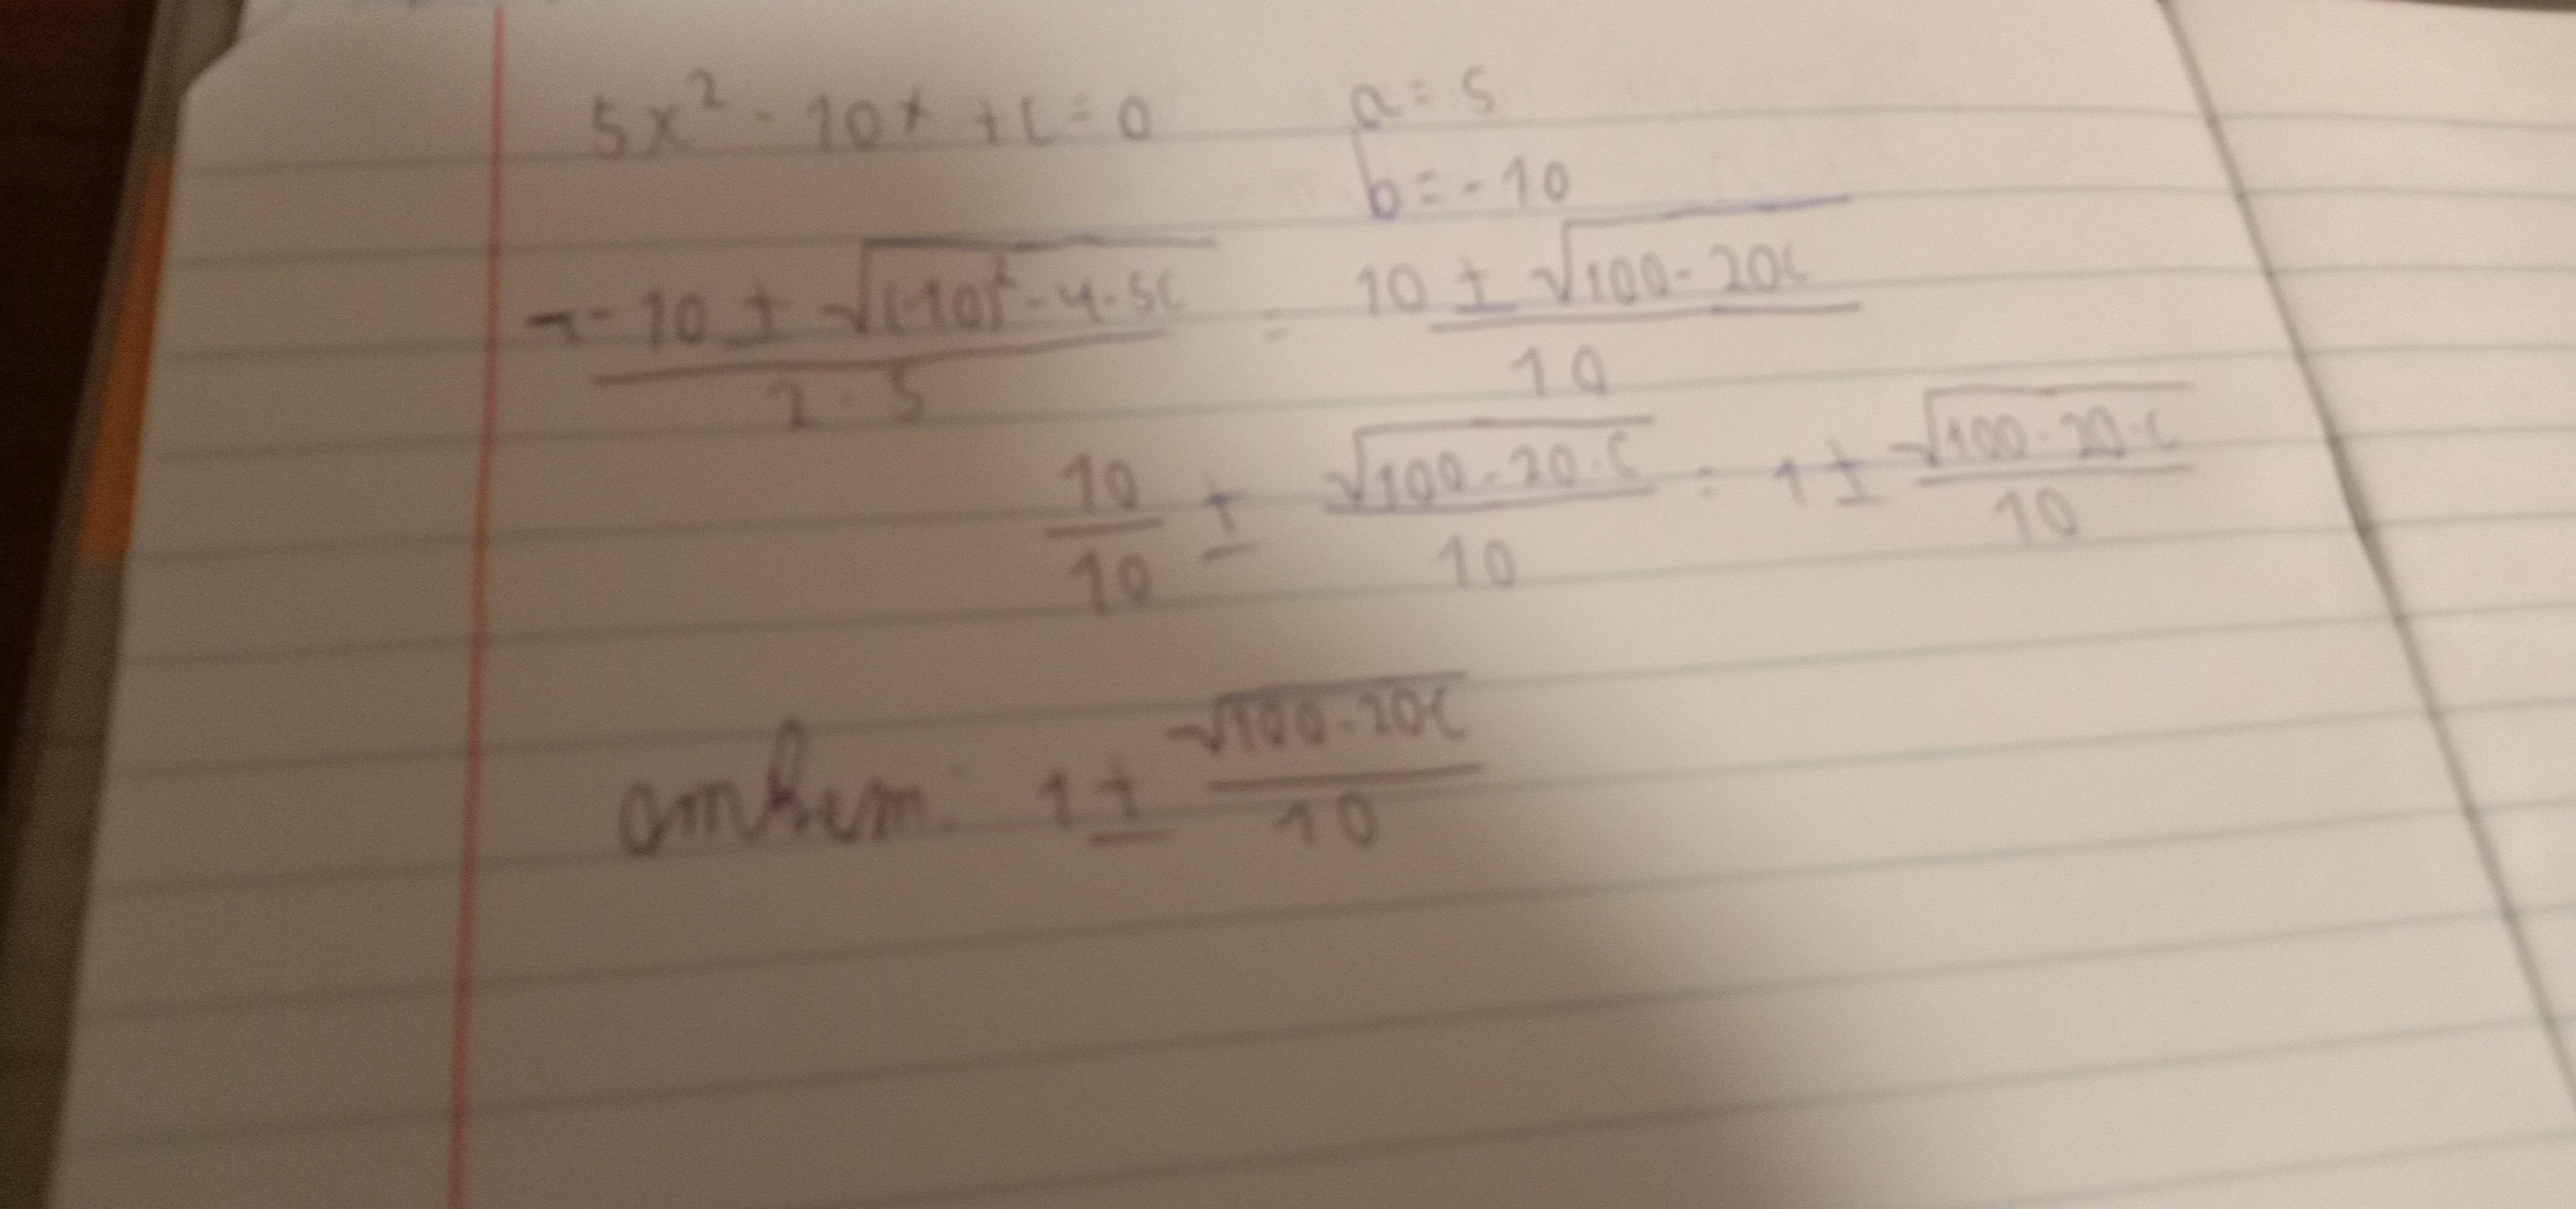 5x² - 10x + c = 0
a = 5
b = -10
--10 ± √((-10)² - 4·5c) / 2·5 = 10 ± √(100 - 20c) / 10
10/10 ± √(100 - 20·c) / 10 = 1 ± √(100 - 20·c) / 10
1 ± √(100 - 20c) / 10